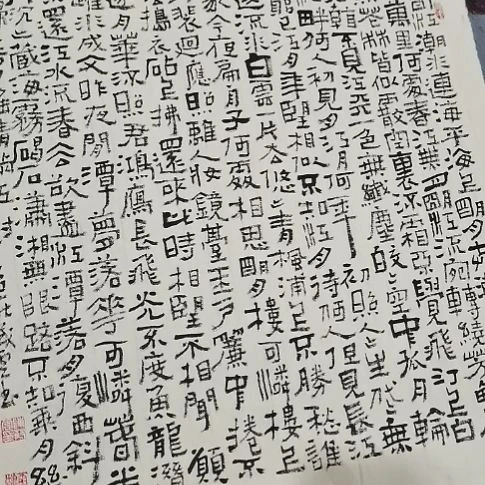 江潮水連海平海上明月
萬里何處春江無月明江流宛轉繞芳
花林皆似霰空裏流霜不覺飛汀上白
見江天一色無纖塵皎皎空中孤月輪
畔何人初見月江月何年初照人人生代代無
江月年年望相似不知江月待何人但見長江
流水白雲一片去悠悠青楓浦上不勝愁誰
家今夜扁舟子何處相思明月樓可憐樓上
裴迴應照離人妝鏡臺玉戶簾中捲不
擣衣砧上拂還來此時相望不相聞願
月華流照君鴻雁長飛光不度魚龍潛
水成文昨夜閒潭夢落花可憐春半
還江水流春去欲盡江潭落月復西斜
沉藏海霧碣石瀟湘無限路不知乘月